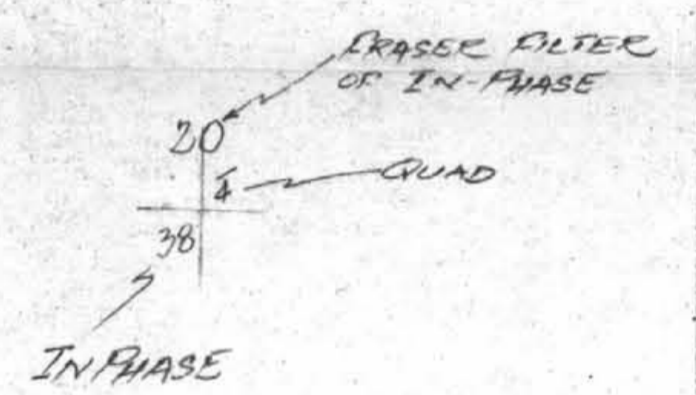 FRASER FILTER
OF IN-PHASE
20
4̄ QUAD
38
INPHASE